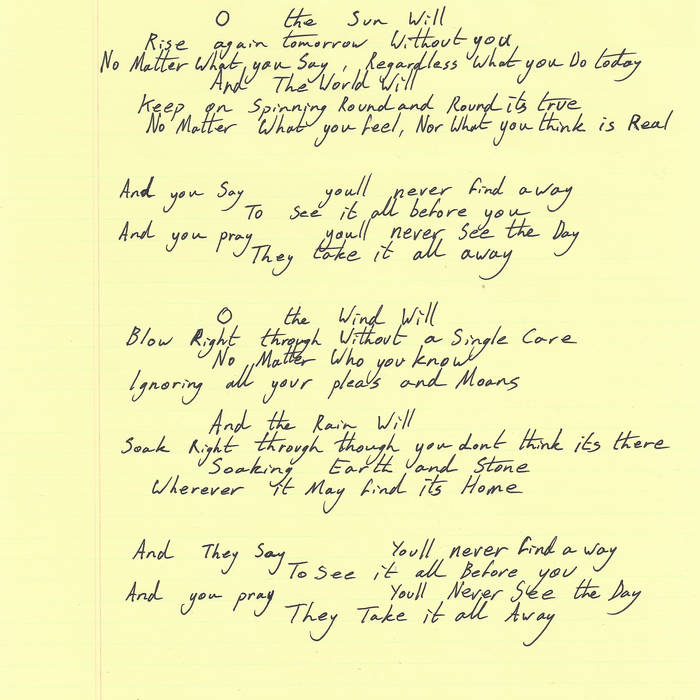 O the Sun Will
Rise again tomorrow Without you
No Matter What you Say, Regardless What you Do today
And The World Will
Keep on Spinning Round and Round its true
No Matter What you feel, Nor What you think is Real
And you Say youll never find a way
To see it all before you
And you pray youll never See the Day
They take it all away
O the Wind Will
Blow Right through Without a Single Care
No Matter Who you know
Ignoring all your pleas and Moans
And the Rain Will
Soak Right through though you dont think its there
Soaking Earth and Stone
Wherever it May find its Home
And They Say Youll never find a way
To See it all Before you
And you pray Youll Never See the Day
They Take it all Away